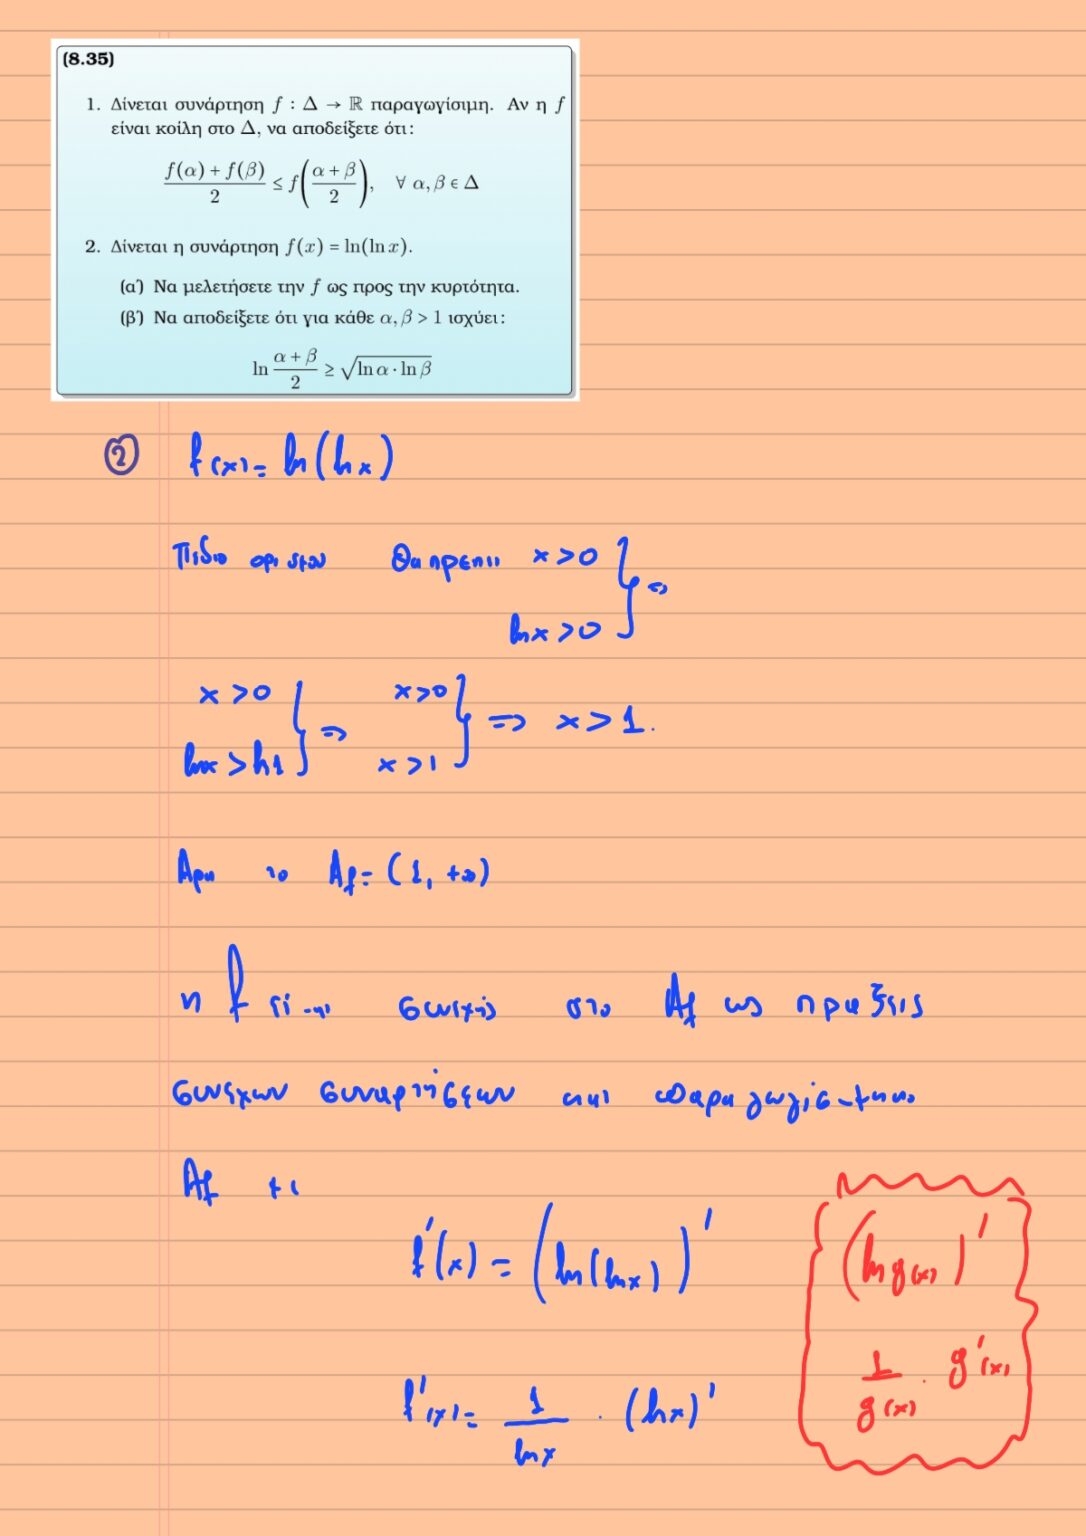 (8.35)
1. Δίνεται συνάρτηση f : Δ → ℝ παραγωγίσιμη. Αν η f
είναι κοίλη στο Δ, να αποδείξετε ότι:
(f(α) + f(β))/2 ≤ f((α + β)/2), ∀ α, β ∈ Δ
2. Δίνεται η συνάρτηση f(x) = ln(ln x).
(α΄) Να μελετήσετε την f ως προς την κυρτότητα.
(β΄) Να αποδείξετε ότι για κάθε α, β > 1 ισχύει:
ln (α + β)/2 ≥ √(ln α · ln β)
② f(x) = ln(lnx)
Πεδιο ορισμου Θα πρεπει x > 0
lnx > 0 } ⇒
x > 0 x > 0
lnx > ln1 } ⇒ x > 1 } ⇒ x > 1.
Αρα το Af = (1, +∞)
η f ειναι συνεχής στο Af ως πραξεις
συνεχων συναρτήσεων και παραγωγίσιμη
Af
f'(x) = (ln(lnx))'
(ln g(x))'
f'(x) = 1/lnx · (lnx)'
1/g(x) · g'(x)